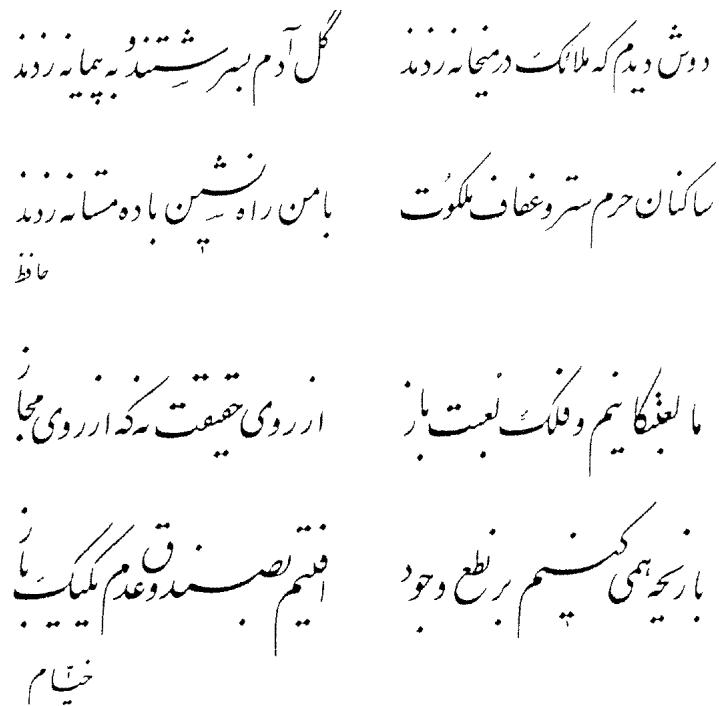 دوش دیدم که ملائک در میخانه زدند گل آدم بسرشتند و به پیمانه زدند
ساکنان حرم ستر و عفاف ملکوت با من راه نشین باده مستانه زدند
حافظ
ما لعبتکانیم و فلک لعبت باز از روی حقیقت نه که از روی مجاز
بازیچه همی کنیم بر نطع وجود افتیم بصندوق عدم یکیک باز
خیّام